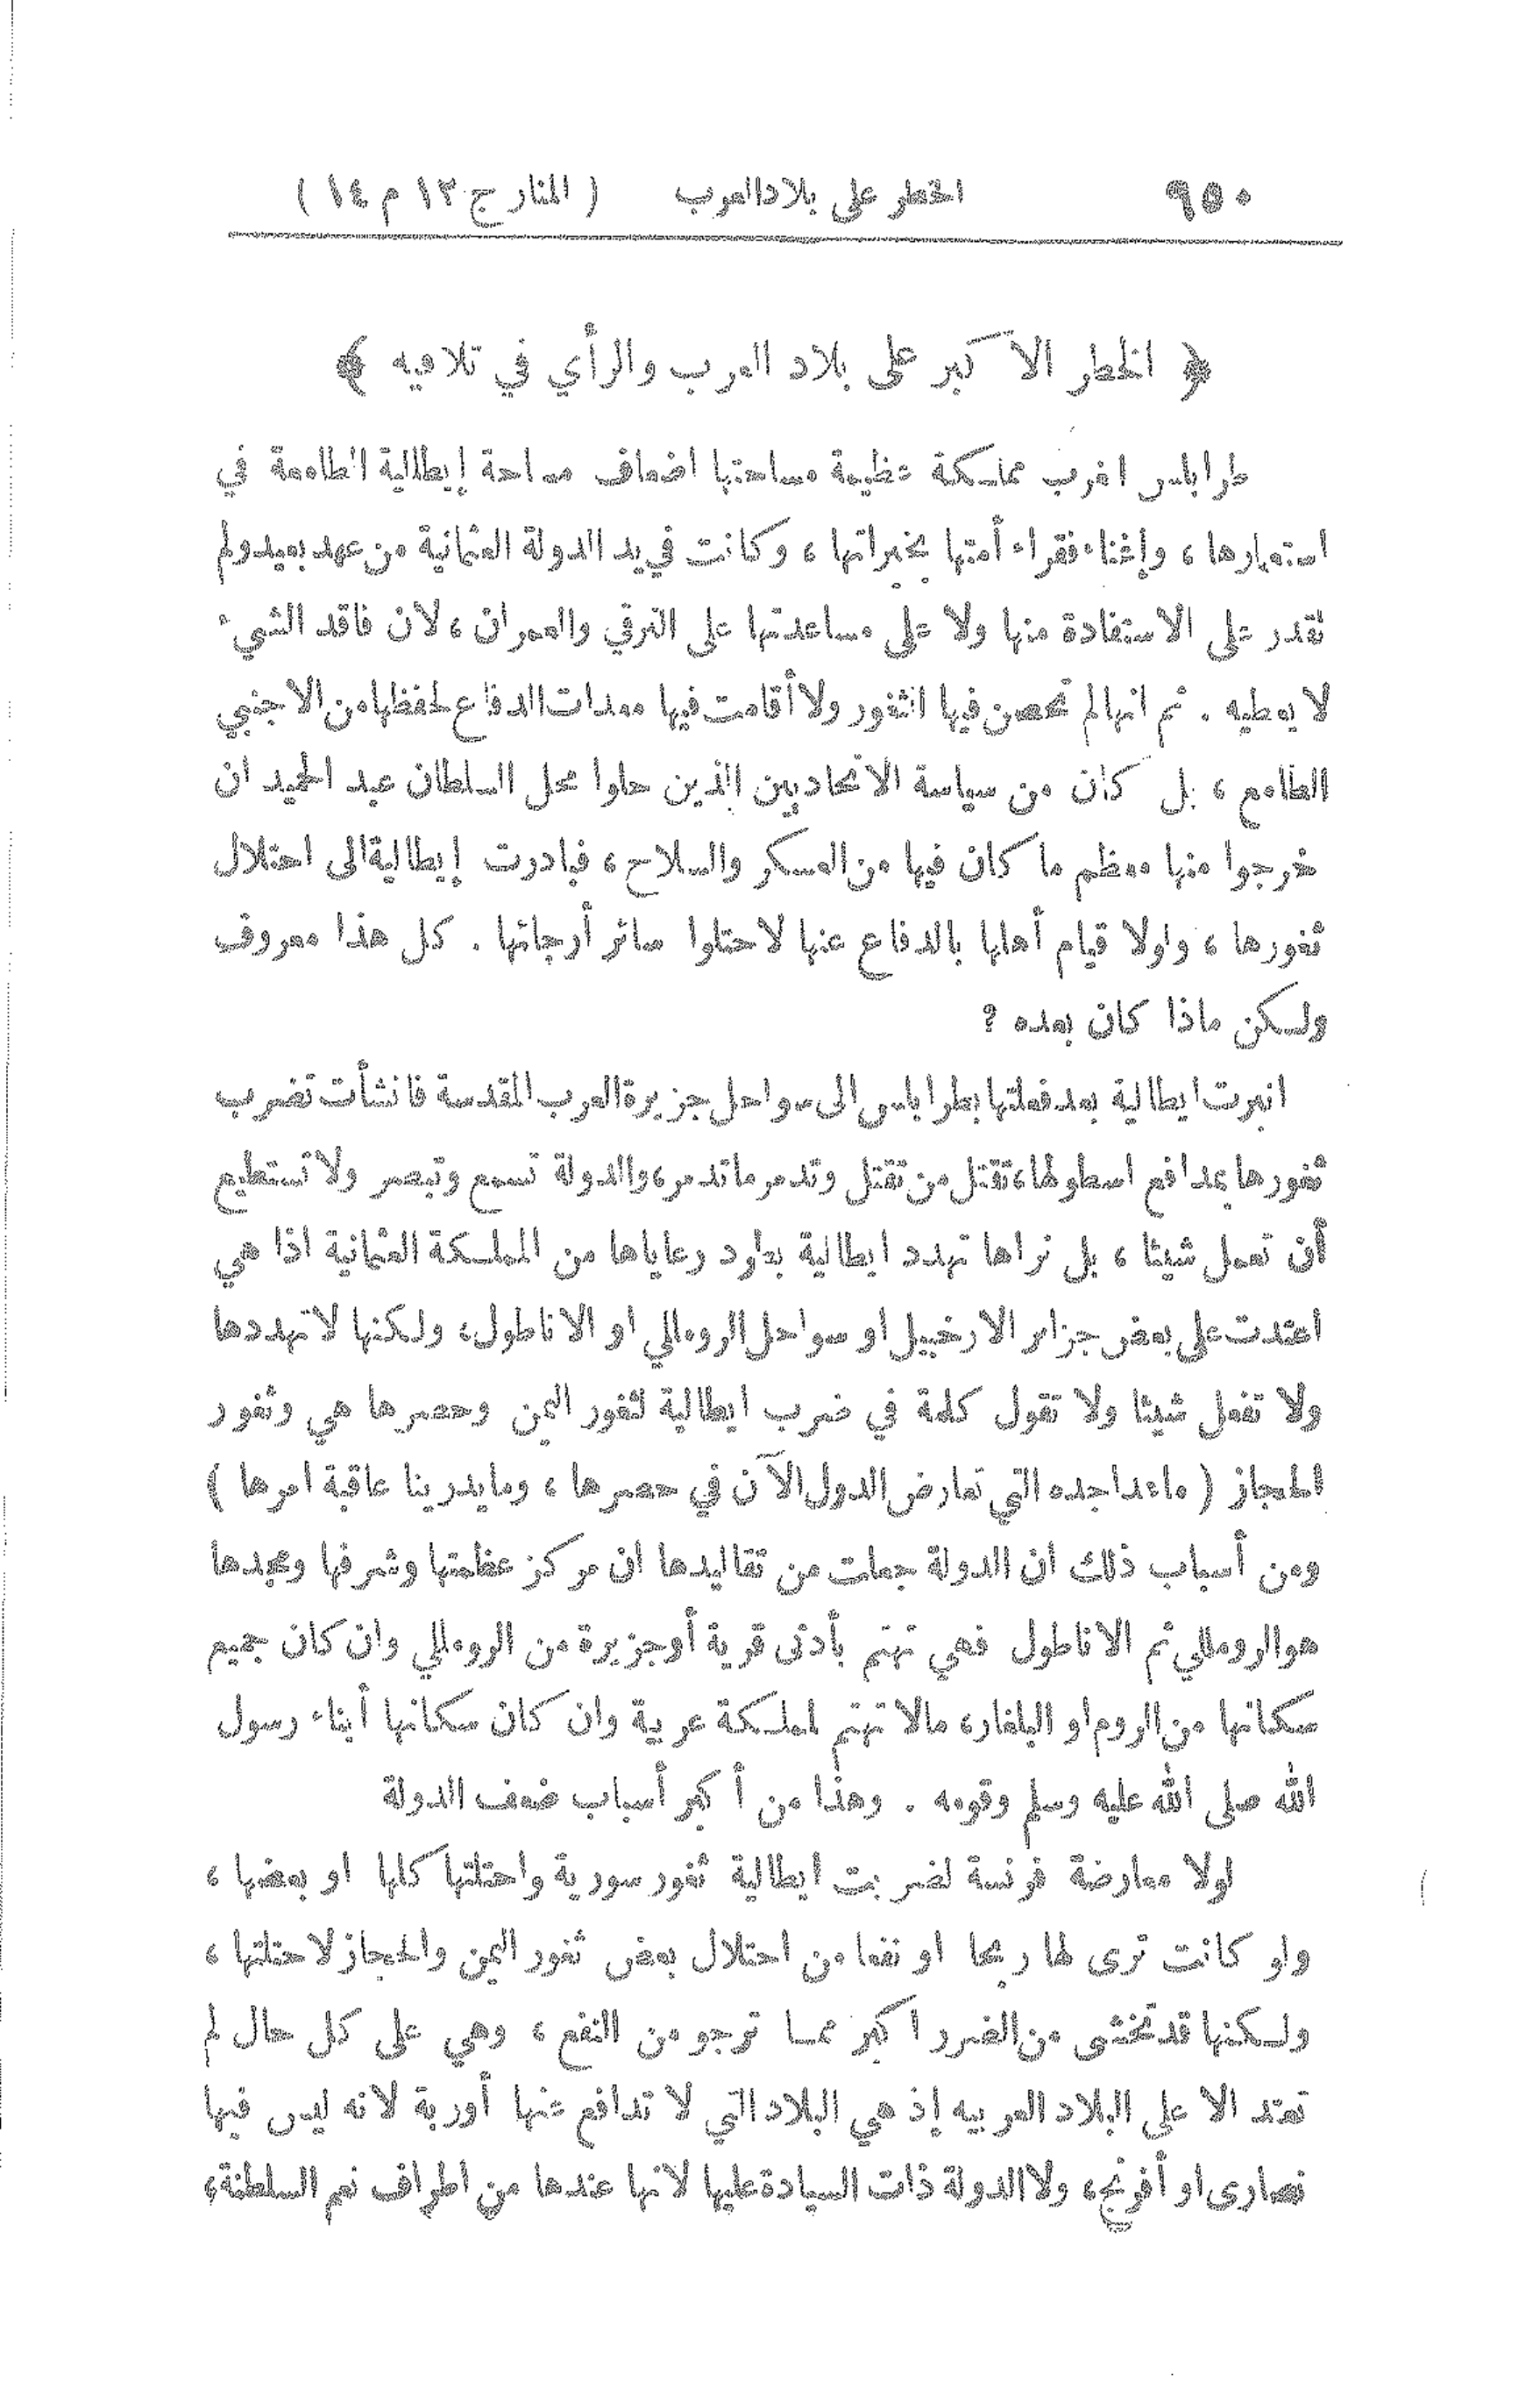 ٩٥٠ الخطر على بلاد العرب ( المنار ج ١٢ م ١٤ )
﴿ الخطر الاكبر على بلاد العرب والرأي في تلافيه ﴾
طرابلس الغرب مملكة عظيمة مساحتها اضعاف مساحة إيطالية الطامعة في
استعمارها ، وإغناء فقراء أمتها بخيراتها ، وكانت في يد الدولة العثمانية من عهد بعيد ولم
تقدر على الاستفادة منها ولا على مساعدتها على الترقي والعمران ، لان فاقد الشيء
لا يعطيه . ثم انها لم تحصن فيها الثغور ولا أقامت فيها معدات الدفاع لحفظها من الاجنبي
الطامع ، بل كان من سياسة الاتحاديين الذين حلوا محل السلطان عبد الحميد ان
خرجوا منها معظم ما كان فيها من العسكر والسلاح ، فبادرت إيطالية الى احتلال
ثغورها ، ولولا قيام أهلها بالدفاع عنها لاحتلوا سائر أرجائها . كل هذا معروف
ولكن ماذا كان بعده ؟
انبرت ايطالية بعد فعلتها بطرابلس الى سواحل جزيرة العرب المقدسة فانشأت تضرب
ثغورها بمدافع اسطولها ، تقتل من تقتل وتدمر ما تدمر ، والدولة تسمع وتبصر ولا تستطيع
أن تعمل شيئا ، بل نراها تهدد ايطالية بطرد رعاياها من المملكة العثمانية اذا هي
اعتدت على بعض جزائر الارخبيل او سواحل الروملي او الاناطول ، ولكنها لا تهددها
ولا تفعل شيئا ولا تقول كلمة في ضرب ايطالية لثغور اليمن وحصرها هي وثغور
الحجاز ( ماعدا جده التي تعارض الدول الآن في حصرها ، وما يدرينا عاقبة امرها )
ومن أسباب ذلك ان الدولة جعلت من تقاليدها ان مركز عظمتها وشرفها ومجدها
هو الروملي ثم الاناطول فهي تهتم بأدنى قرية أو جزيرة من الروملي وان كان جميع
سكانها من الروم او البلغار ، مالا تهتم لمملكة عربية وان كان سكانها أبناء رسول
الله صلى الله عليه وسلم وقومه . وهذا من أكبر أسباب ضعف الدولة
لولا معارضة فرنسة لضربت ايطالية ثغور سورية واحتلتها كلها او بعضها ،
ولو كانت ترى لها ربحا او نفعا من احتلال بعض ثغور اليمن والحجاز لاحتلتها ،
ولكنها قد تخشى من الضرر اكبر مما ترجو من النفع ، وهي على كل حال لم
تعتد الا على البلاد العربيه إذ هي البلاد التي لا تدافع عنها أوربة لانه ليس فيها
نصارى او أفرنج ، ولا الدولة ذات السيادة عليها لانها عندها من اطراف نعم السلطنة ،